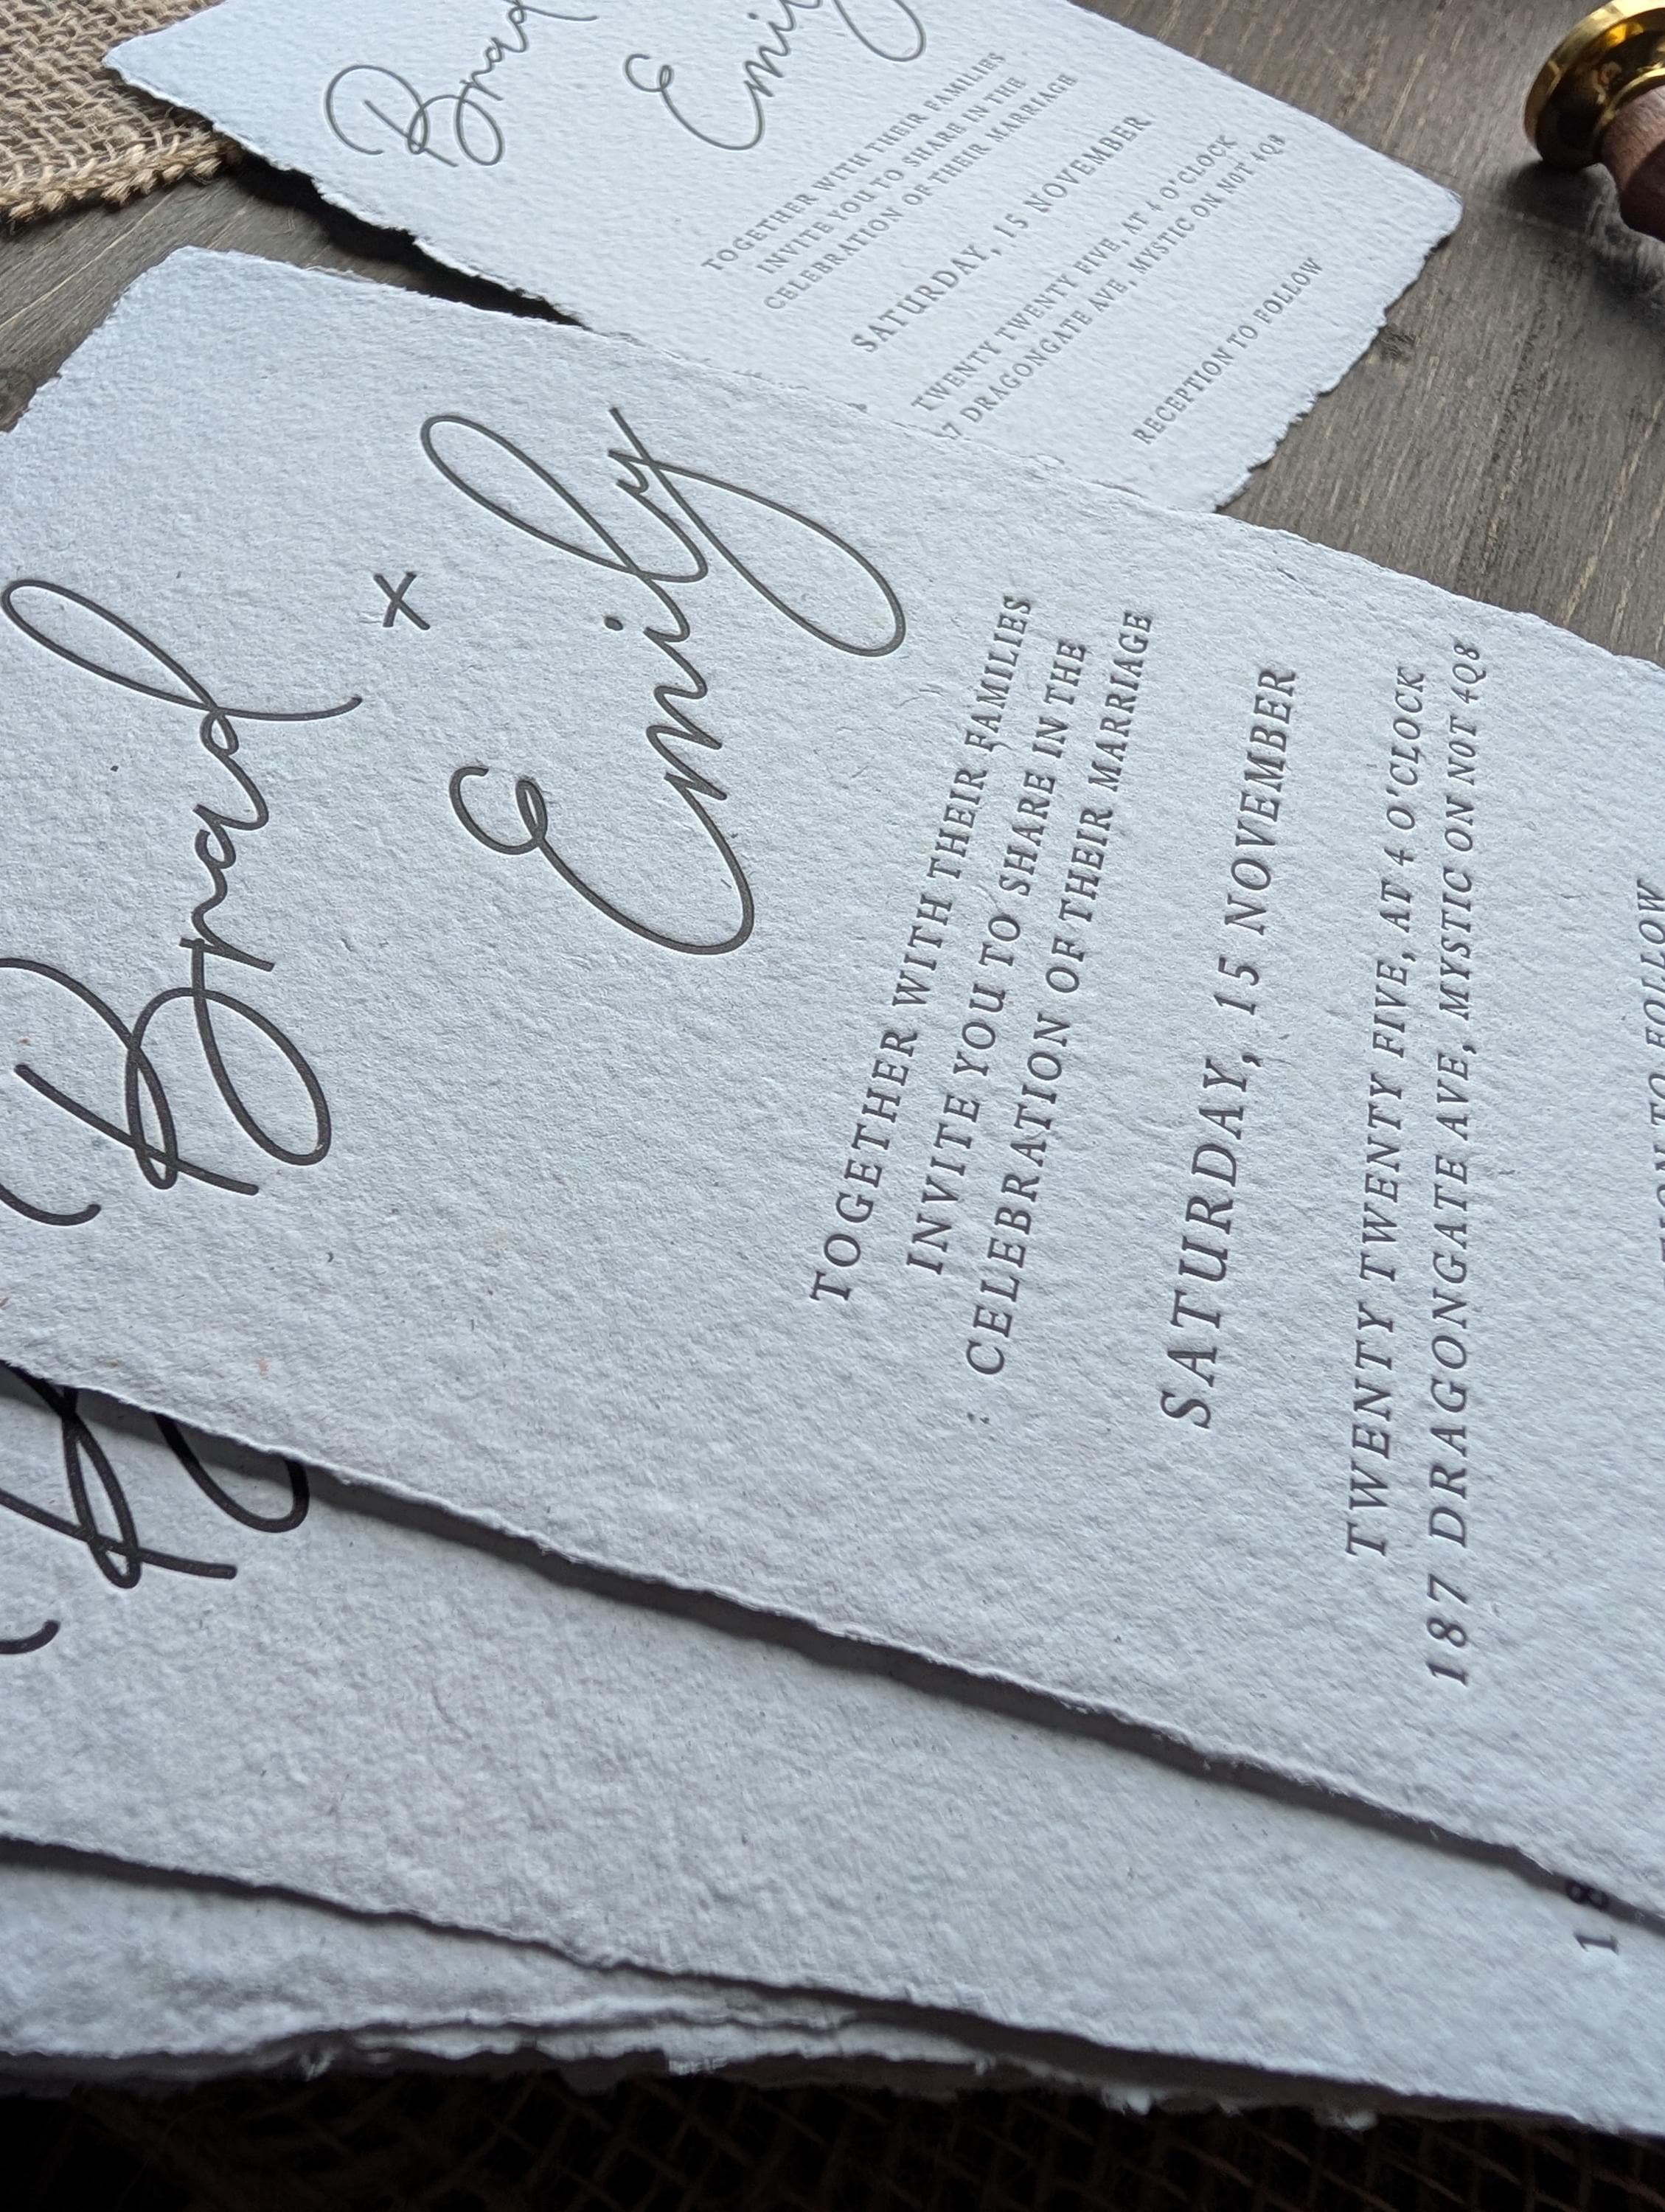 Brad
x
Emily
TOGETHER WITH THEIR FAMILIES
INVITE YOU TO SHARE IN THE
CELEBRATION OF THEIR MARRIAGE
SATURDAY, 15 NOVEMBER
TWENTY TWENTY FIVE, AT 4 O'CLOCK
187 DRAGONGATE AVE, MYSTIC ON NOT 4Q8
TO FOLLOW
Brad
Emily
TOGETHER WITH THEIR FAMILIES
INVITE YOU TO SHARE IN THE
CELEBRATION OF THEIR MARRIAGE
SATURDAY, 15 NOVEMBER
TWENTY TWENTY FIVE, AT 4 O'CLOCK
7 DRAGONGATE AVE, MYSTIC ON NOT 4Q8
RECEPTION TO FOLLOW
B
18